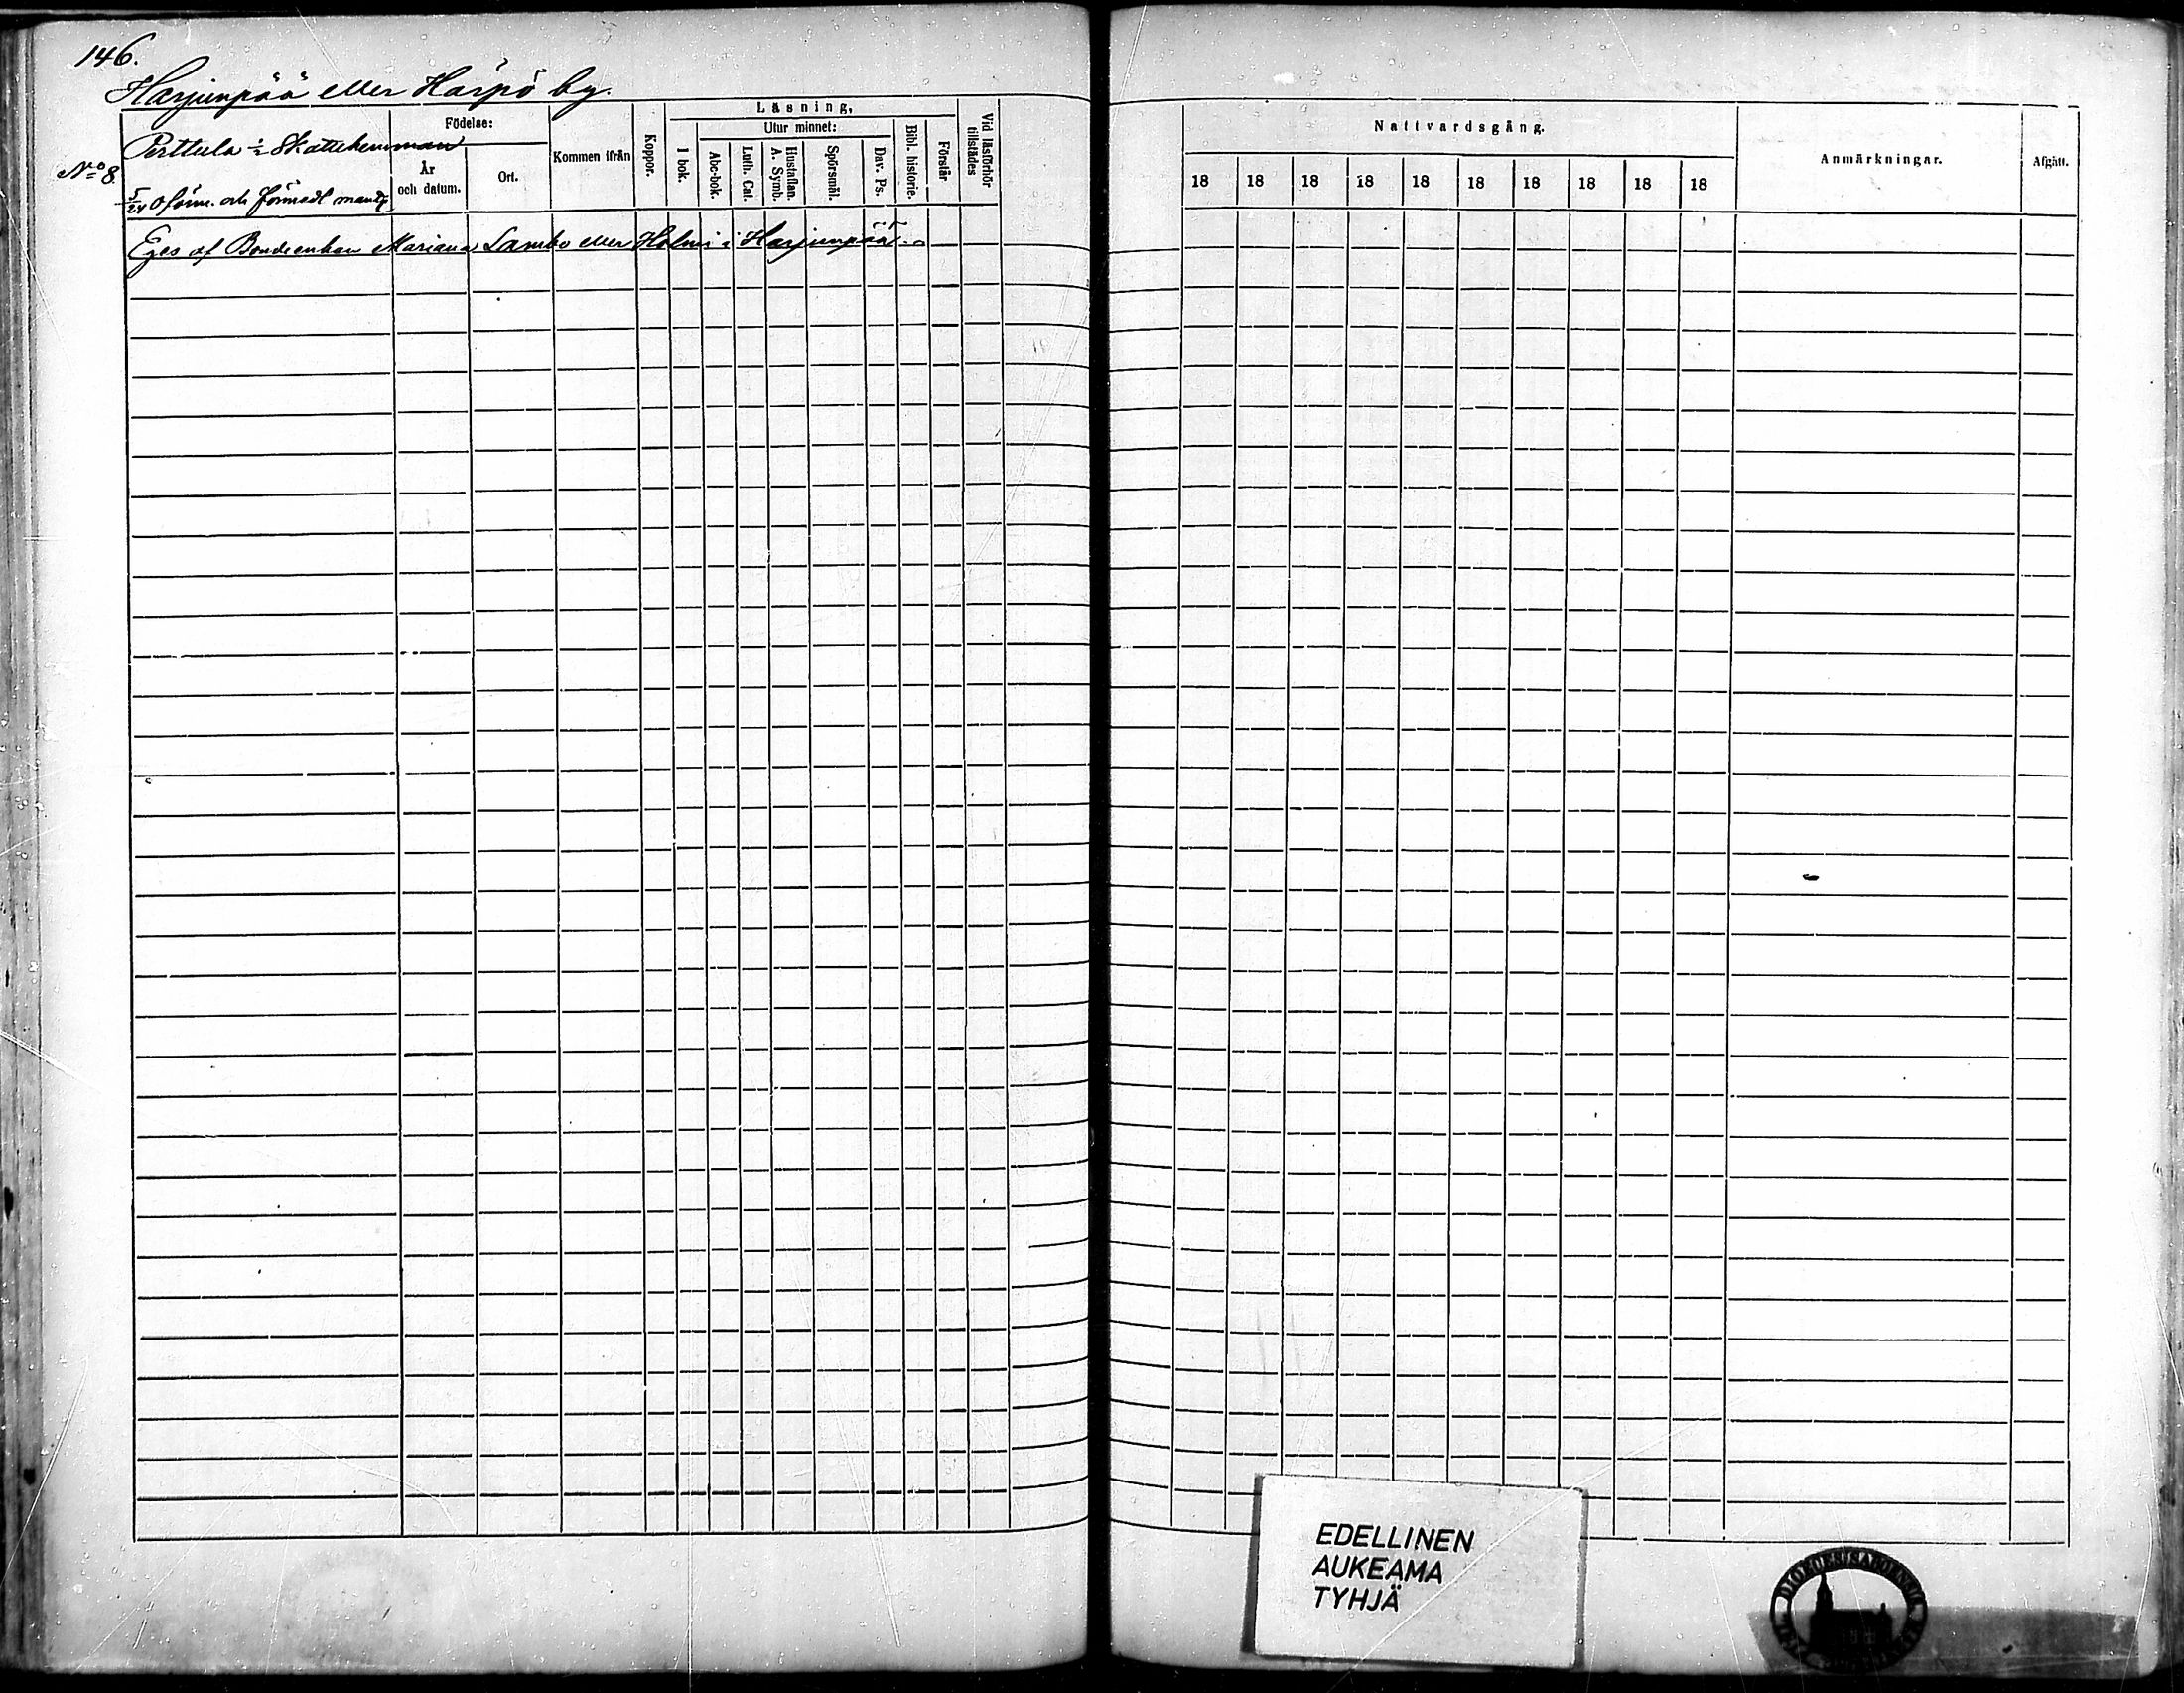 146.
Harjunpää eller Harpö by.
Perttula ½ Skattehemman
No 8.
5/24 oförm. och förmedl mantl
Födelse:
År och datum.
Ort.
Kommen ifrån
Koppor.
Läsning,
I bok.
Utur minnet:
Abc-bok.
Luth. Cat.
Hustaflan. A. Symb.
Spörsmål.
Dav. Ps.
Bibl. historie.
Förstår
Vid läsförhör tillstädes
Nattvardsgång.
18 18 18 18 18 18 18 18 18 18
Anmärkningar.
Afgått.
Eges af Bondeenkan Mariana Lambo eller Holmi i Harjunpää.
EDELLINEN
AUKEAMA
TYHJÄ